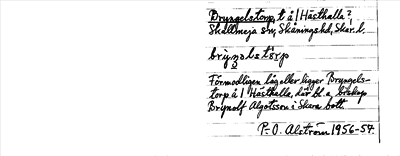 Bryngelstorp, t å 1 Hästhalla?
Skällmeja sn, Skånings hd, Skar. l.
bry̆ŋəlstɔrp
Förmodligen låg eller ligger Bryngels-
torp å 1 Hästhalla, där bl.a. biskop
Brynolf Algotsson i Skara bott.
P.-O. Alström 1956-57.